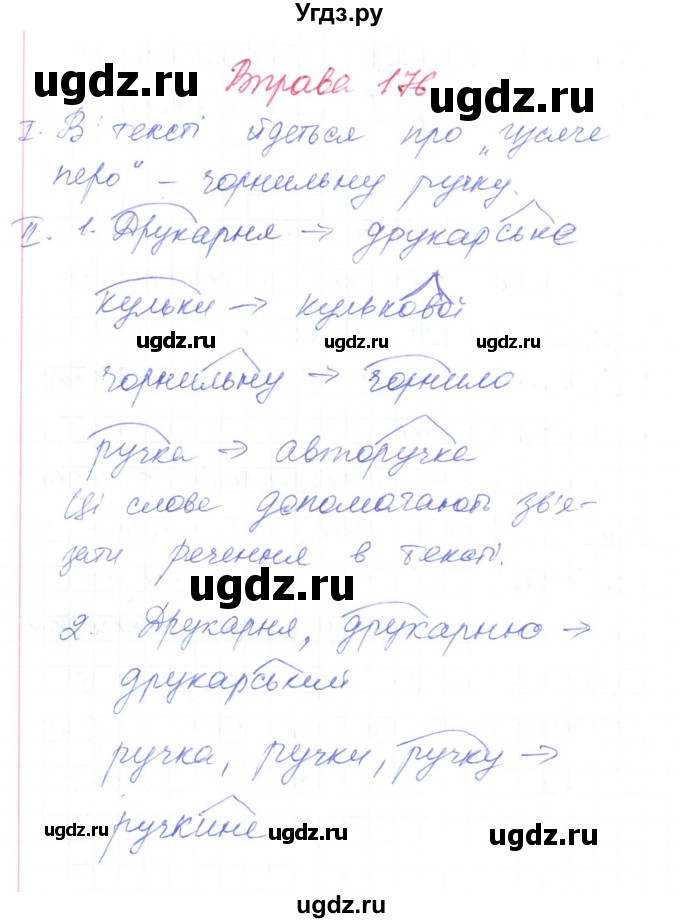 Угдз.ру
ugdz.ru ugdz.ru
Вправа 176
I. В тексті йдеться про „гусяче
перо“ – чорнильну ручку.
II. 1. Друкарня → друкарське
кульки → кулькової
ugdz.ru ugdz.ru ugdz.ru
чорнильну → чорнило
ручка → авторучка
Ці слова допомагають зв'я-
зати речення в тексті.
ugdz.ru
2. Друкарня, друкарню →
друкарський
ручка, ручки, ручку →
ручкине
ugdz.ru ugdz.ru ugdz.ru
ugdz.ru